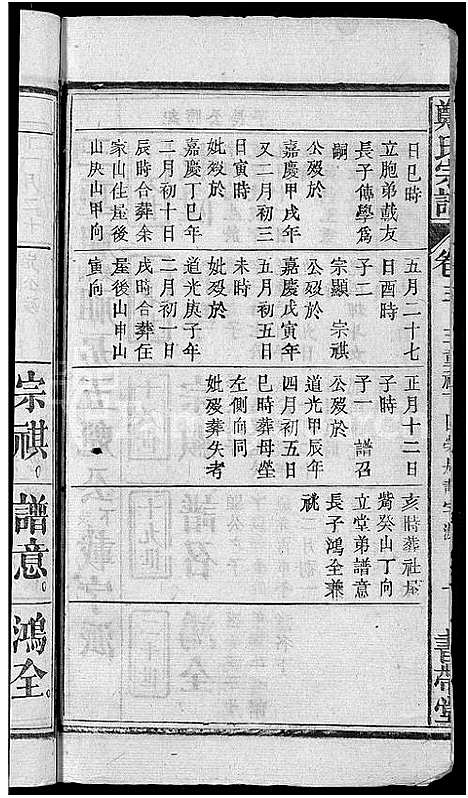 鄭氏宗譜
書帶堂
日巳時
立胞弟戴友
長子傳學爲
嗣
公殁於
嘉慶甲戌年
又二月初三
日寅時
妣殁於
嘉慶丁巳年
二月初十日
辰時合葬余
家山住屋後
山庚山甲向
五月二十七
日酉時
子二
宗顯　宗祺
公殁於
嘉慶戊寅年
五月初五日
未時
妣殁於
道光庚子年
二月初一日
戌時合葬住
屋後山申山
寅向
正月十二日
子時
子一　譜召
公殁於
道光甲辰年
四月初五日
巳時葬母塋
左側向同
妣殁葬失考
亥時葬社屋
觜癸山丁向
立堂弟譜意
長子鴻全兼
祧
宗祺。
譜意。
鴻全。